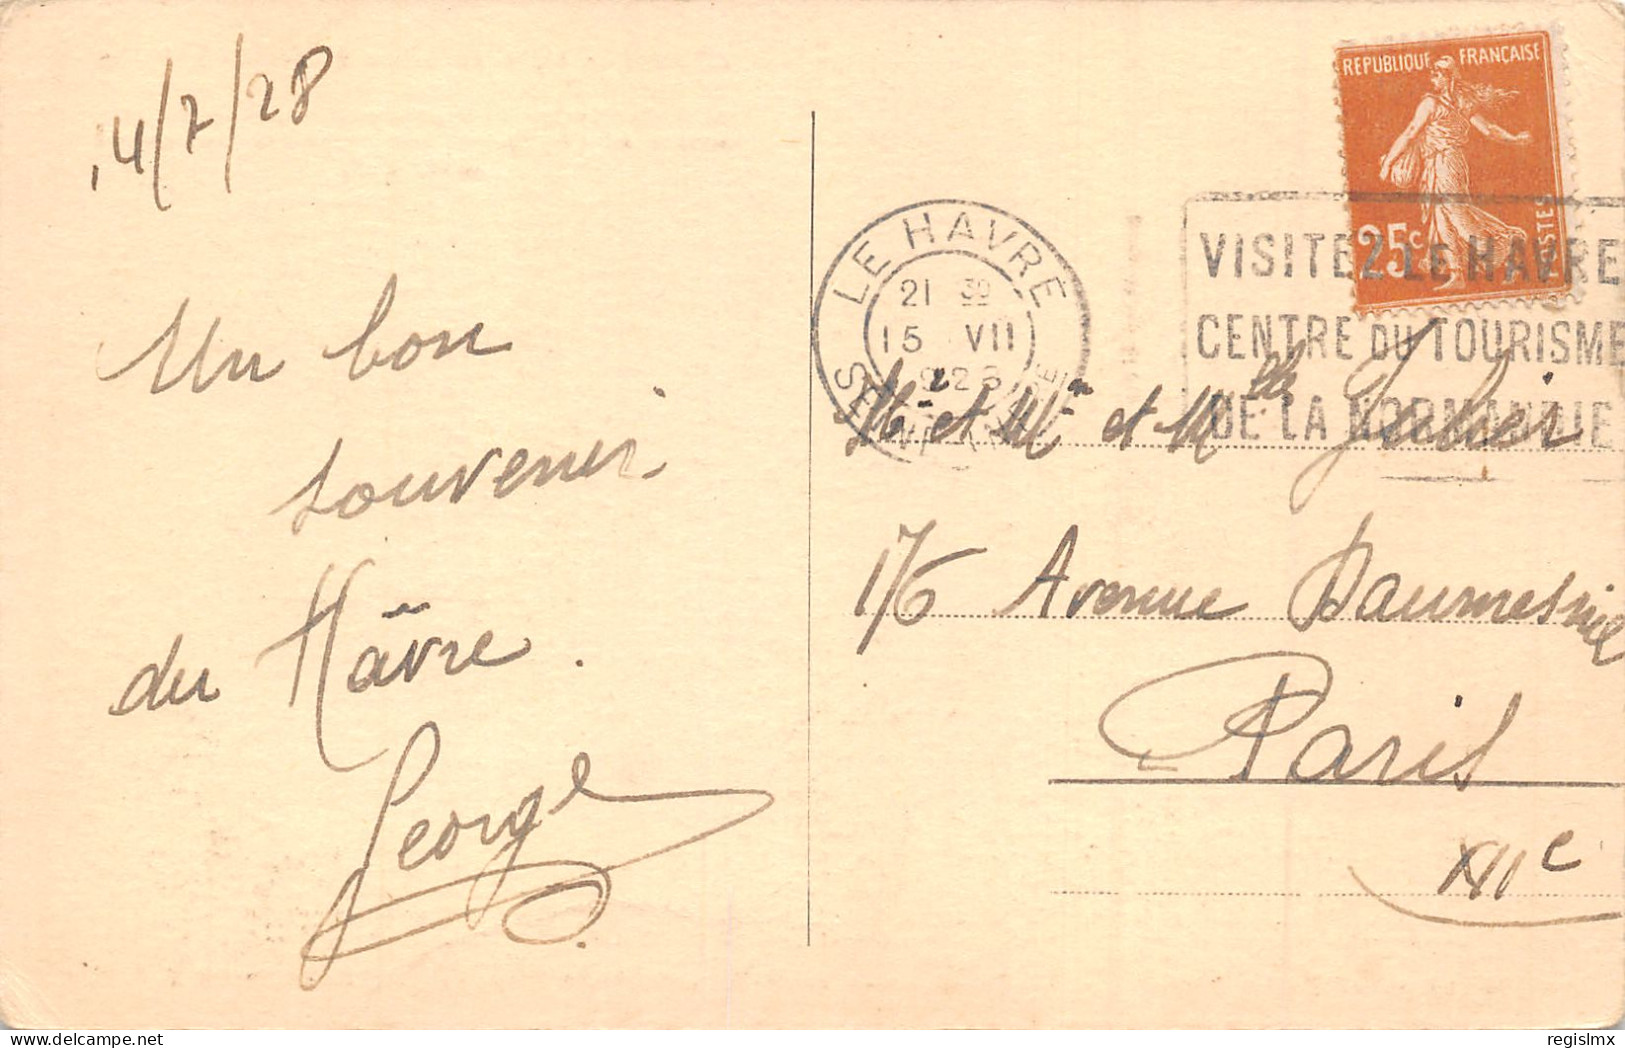 14/7/28
Un bon
souvenir
du Hâvre.
George
REPUBLIQUE FRANÇAISE
25c
POSTES
LE HAVRE
21 30
15 VII
VISITEZ LE HAVRE
CENTRE DU TOURISME
DE LA NORMANDIE
Mr et Mme et Mlle
176 Avenue Daumesnil
Paris
XIIe
regislmx